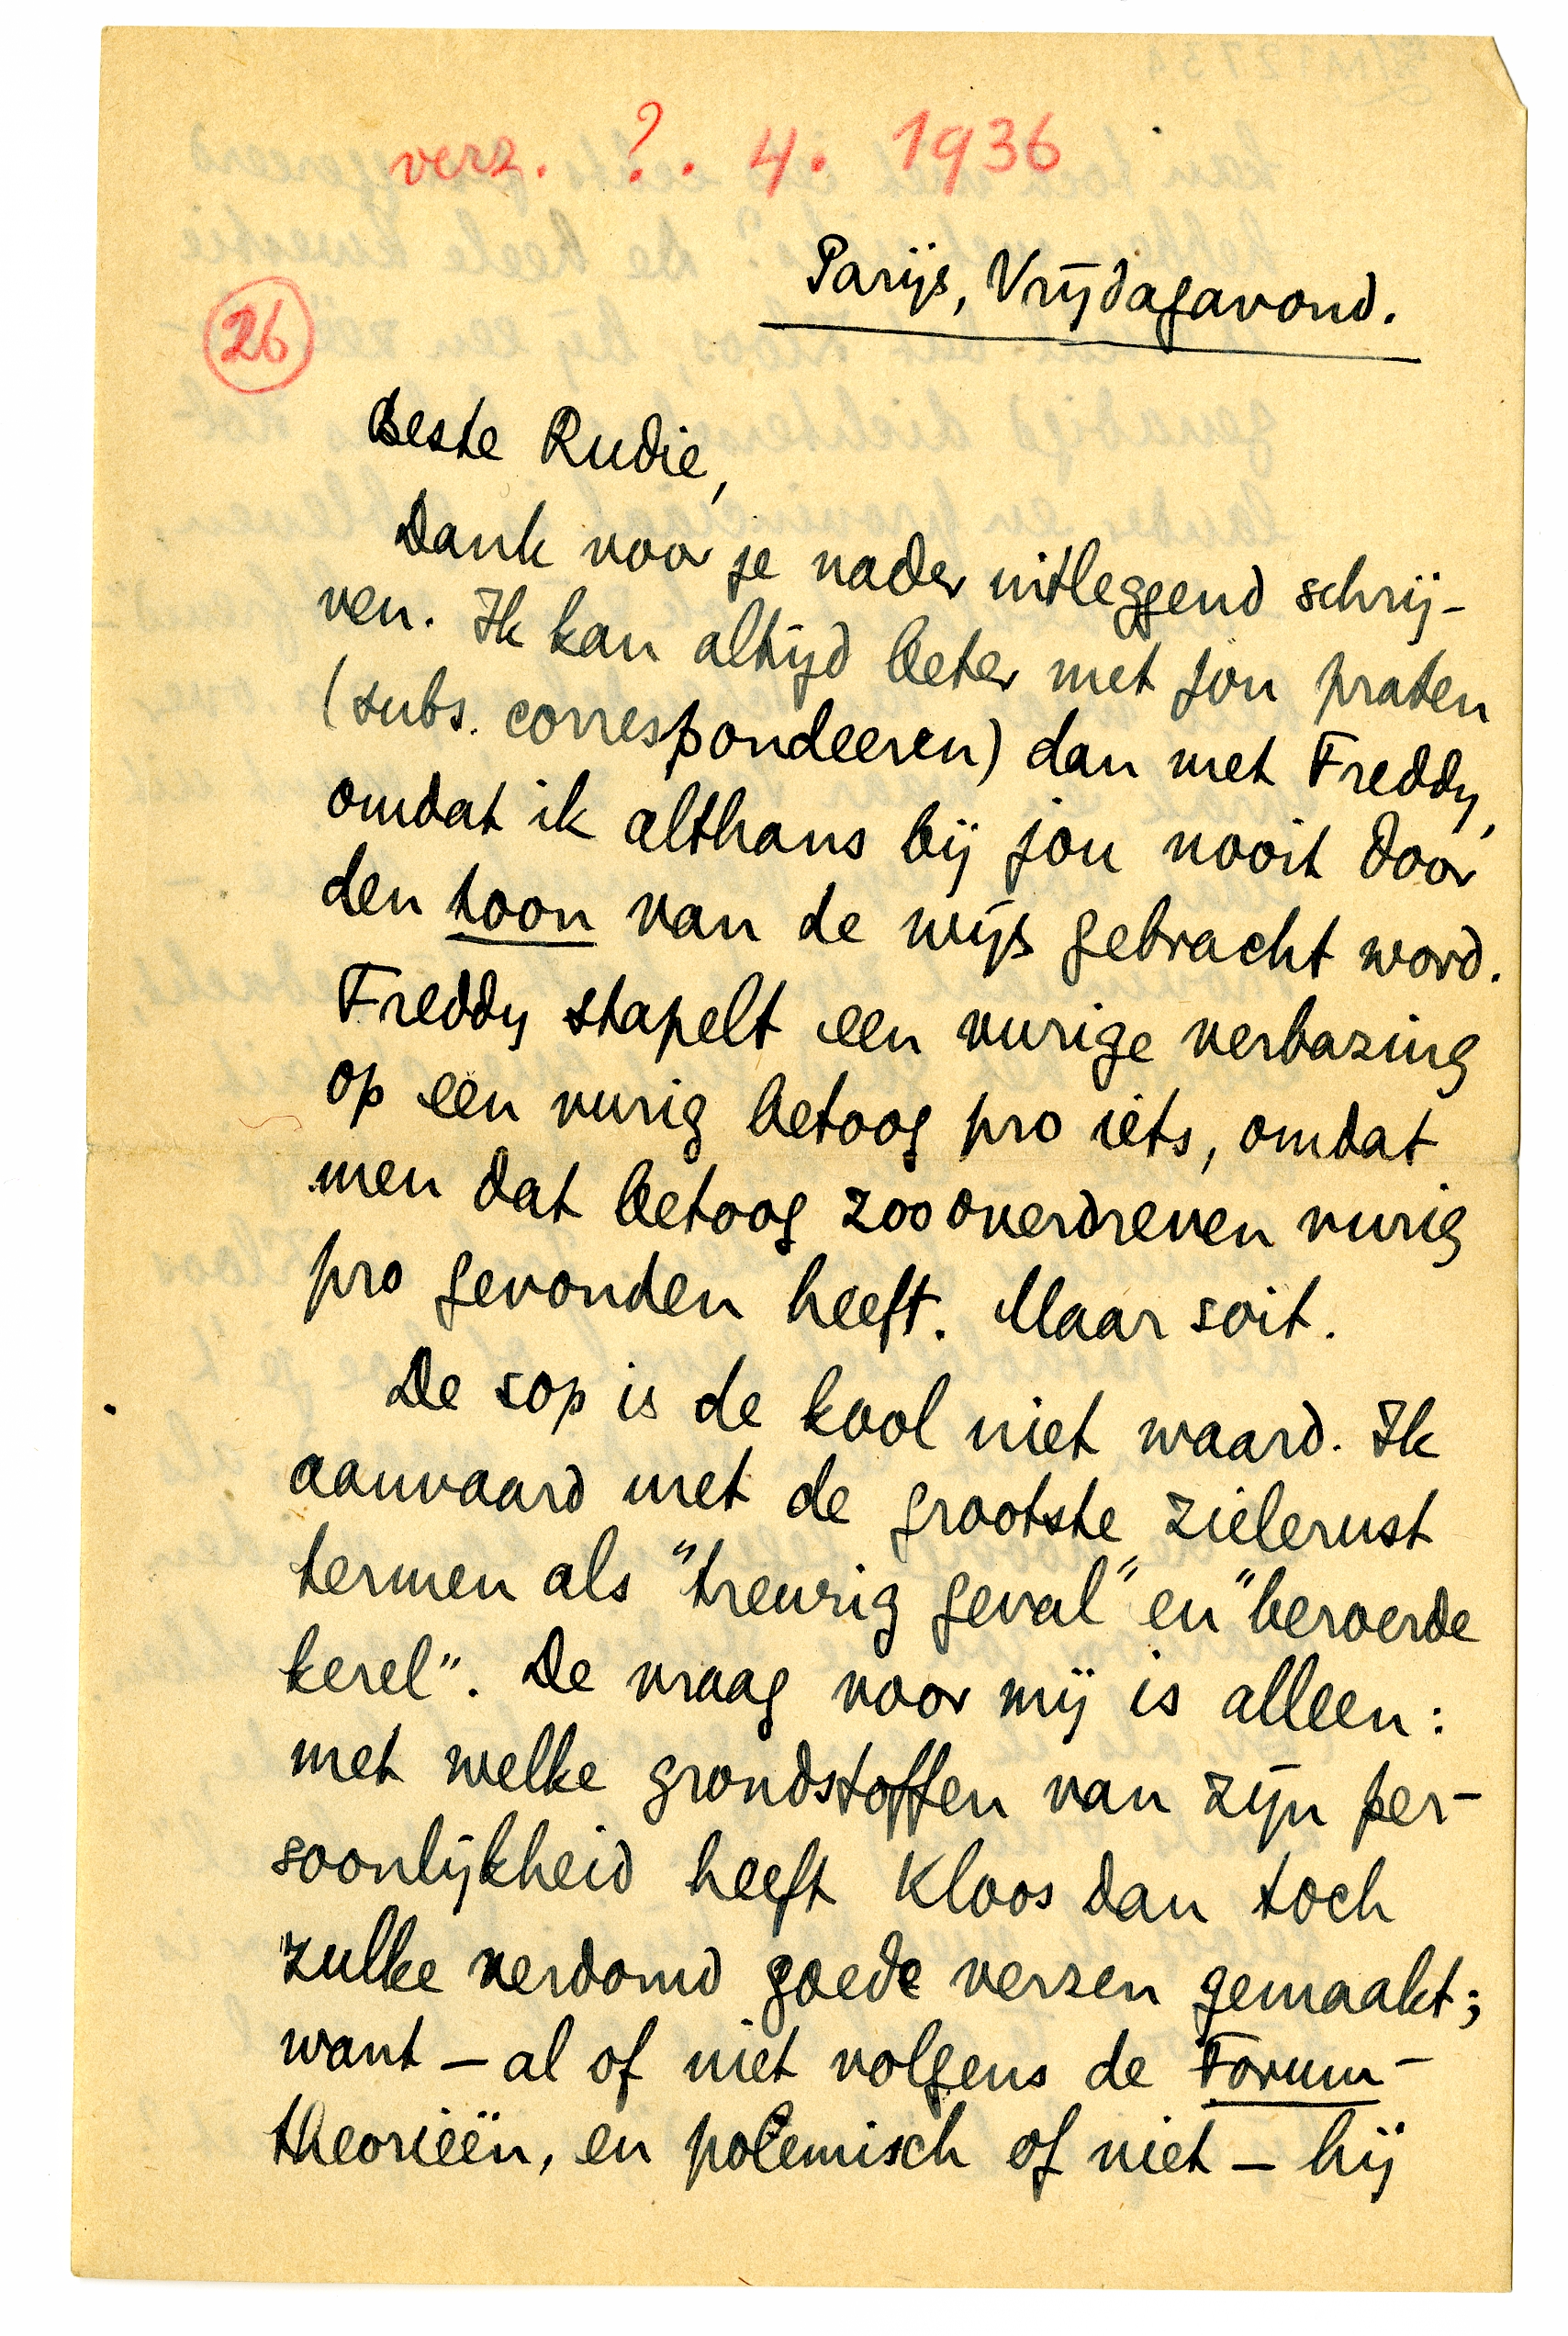 verz. ?. 4. 1936
Parijs, Vrijdagavond.
26
Beste Rudie,
Dank voor je nader uitleggend schrij-
ven. Ik kan altijd beter met jou praten
(subs. correspondeeren) dan met Freddy,
omdat ik althans bij jou nooit door
den toon van de wijs gebracht word.
Freddy stapelt een vurige verbazing
op een vurig betoog pro iets, omdat
men dat betoog zoo overdreven vurig
pro gevonden heeft. Maar soit.
De sop is de kool niet waard. Ik
aanvaard met de grootste zielerust
termen als "treurig geval" en "beroerde
kerel". De vraag voor mij is alleen:
met welke grondstoffen van zijn per-
soonlijkheid heeft Kloos dan toch
zulke verdomd goede verzen gemaakt;
want – al of niet volgens de Forum-
theorieën, en polemisch of niet – hij